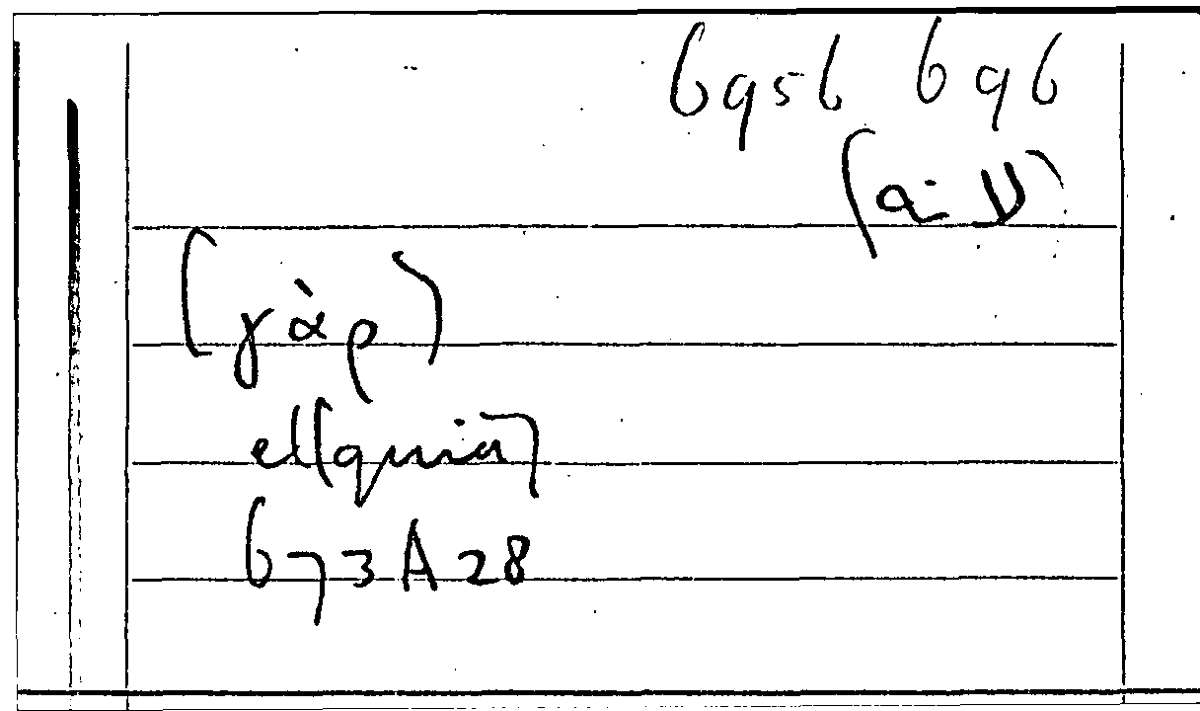 695b 696
(a- V)
(γὰρ)
el(quia)
673A28